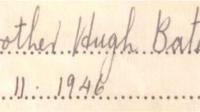 other Hugh Bat
11. 1946